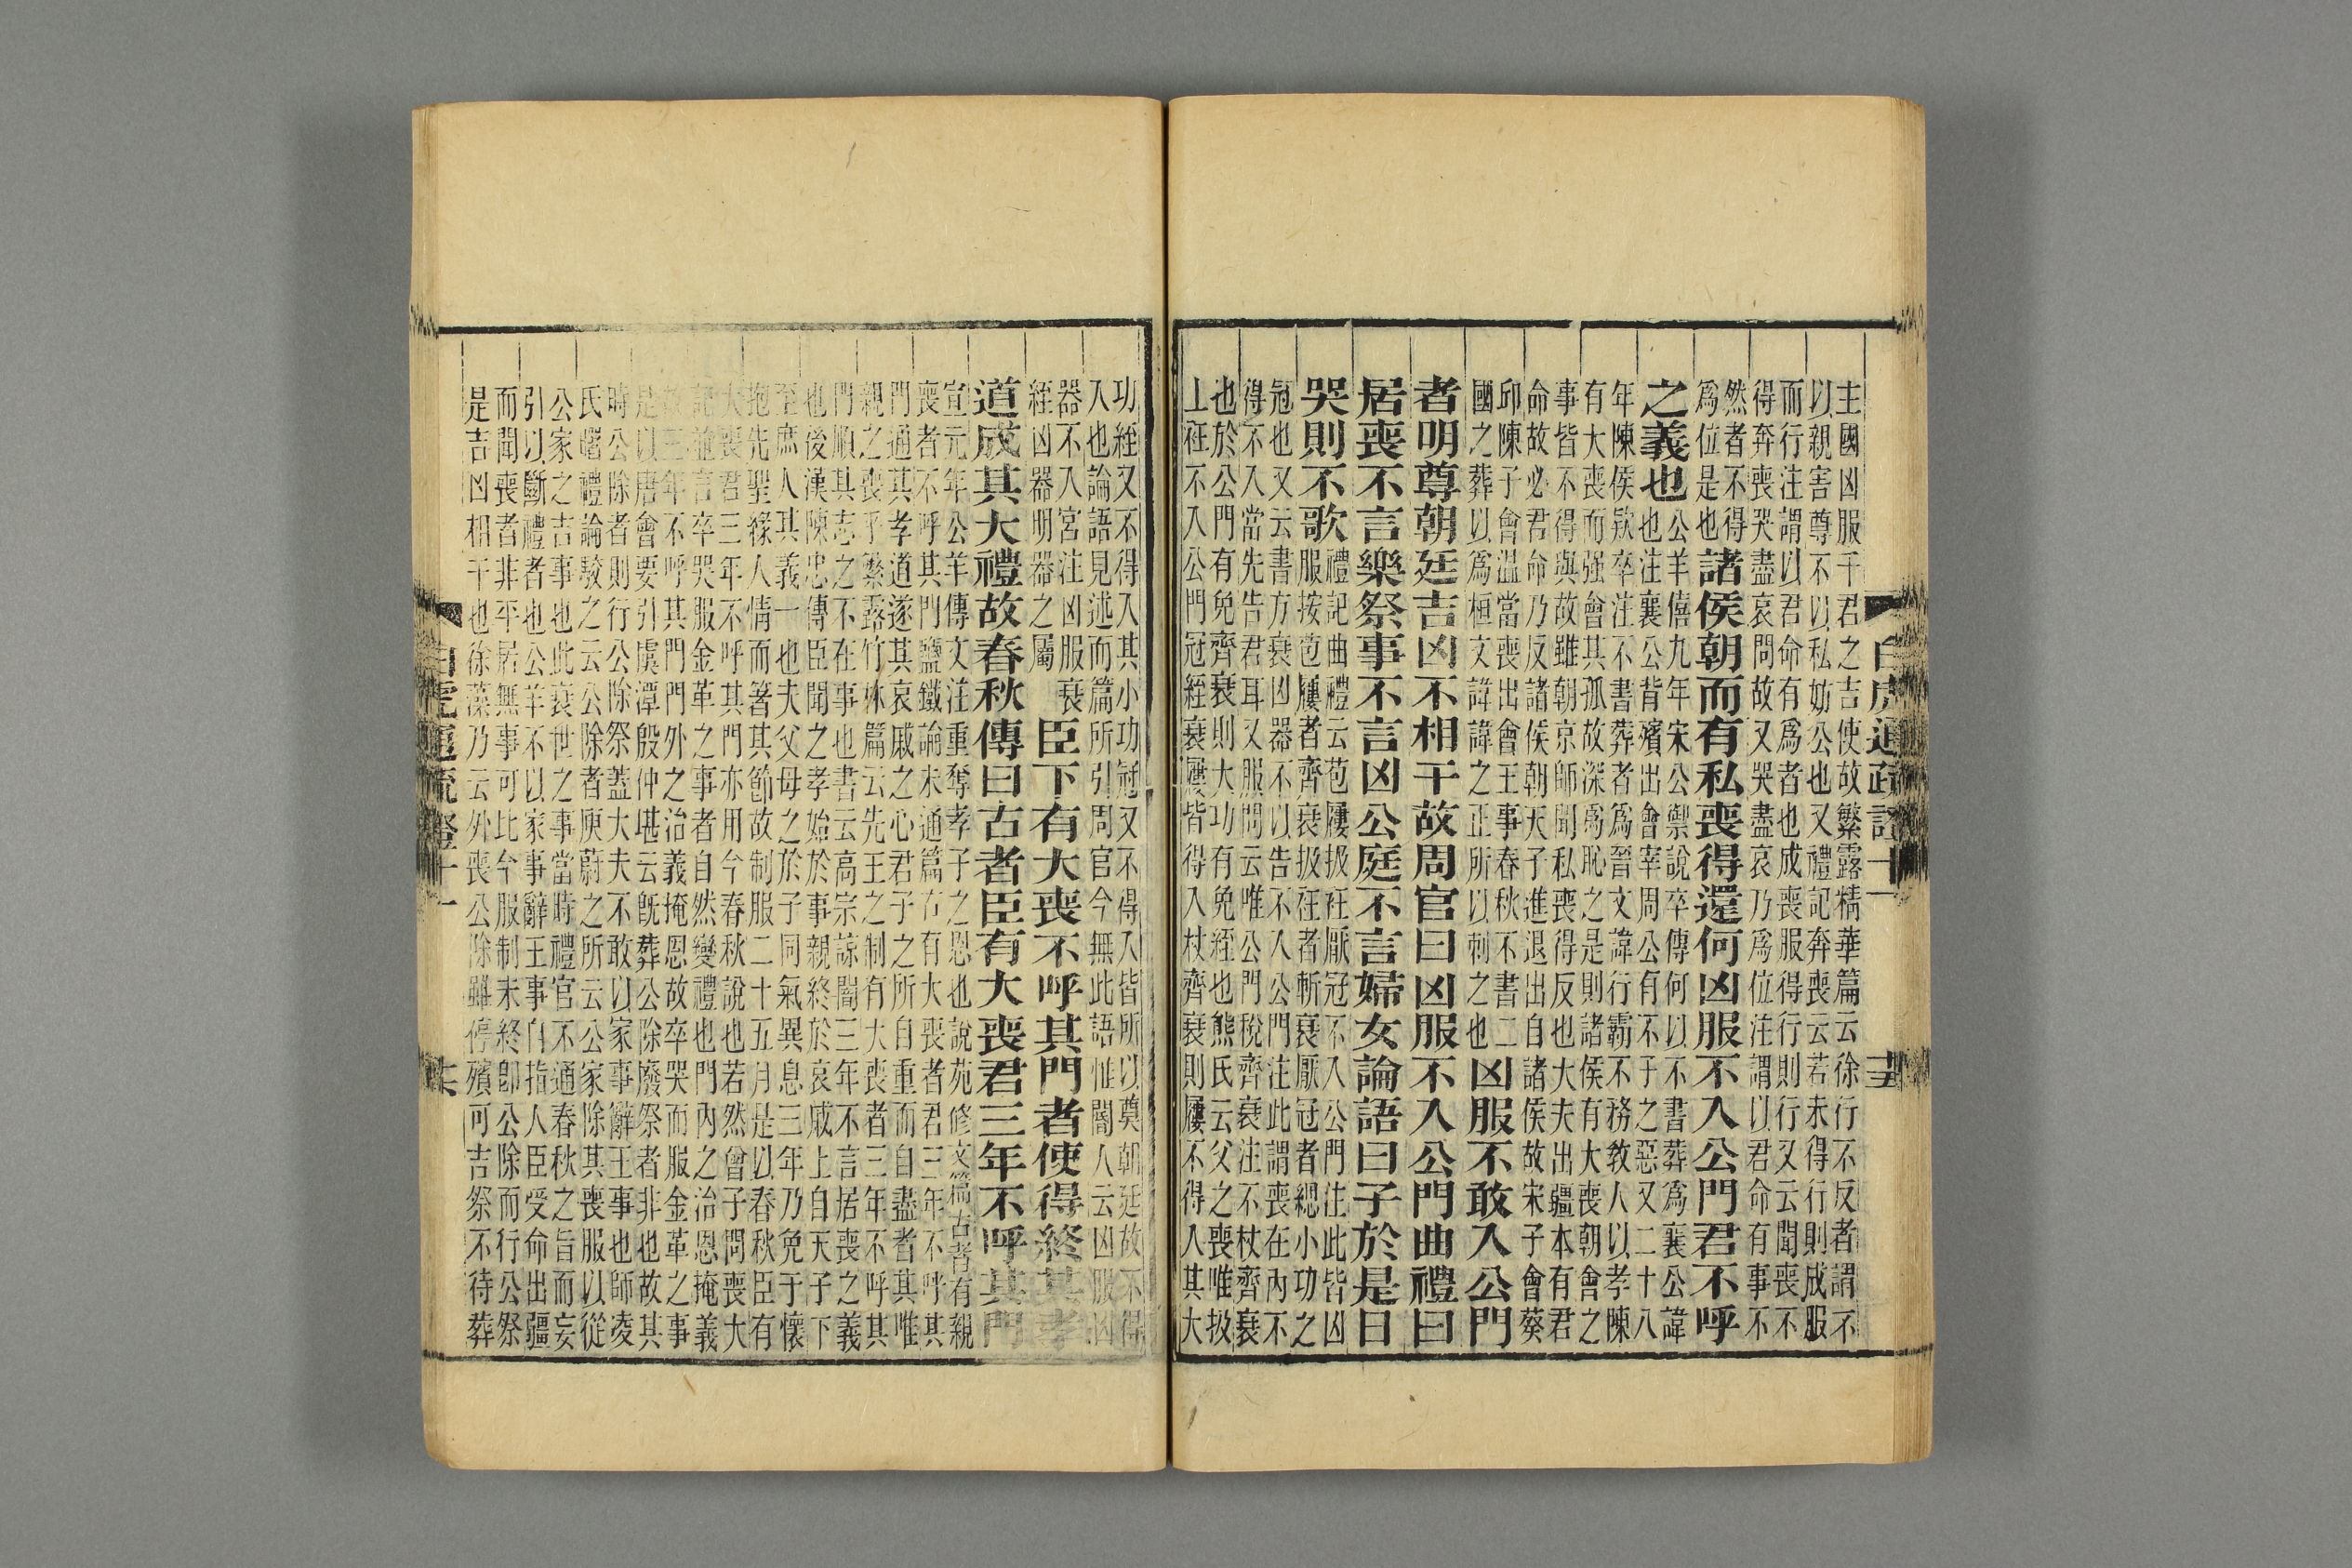 白虎通疏證十一
十五
主國凶服干君之吉使故繁露精華篇云徐行不反者謂不
以親害尊不以私妨公也又禮記奔喪云若未得行則成服
而行注謂以君命有爲者也成喪服得行則行又云聞喪不
得奔喪哭盡哀問故又哭盡哀乃爲位注謂以君命有事不
然者不得
爲位是也
諸侯朝而有私喪得還何凶服不入公門君不呼
之義也
公羊僖九年宋公禦說卒傳何以不書葬爲襄公諱
也注襄公背殯出會宰周公有不子之惡又二十八
年陳侯款卒注不書葬者爲晉文諱行霸不務教人以孝陳
有大喪而强會其孤故深爲恥之是則諸侯有大喪朝會之
事皆不得與故雖朝京師聞私喪得反也大夫出疆本有君
命故必君命乃反諸侯朝天子進退出自諸侯故宋子會葵
邱陳子會温當喪出會王事春秋不書二
國之葬以爲桓文諱諱之正所以刺之也
凶服不敢入公門
者明尊朝廷吉凶不相干故周官曰凶服不入公門曲禮曰
居喪不言樂祭事不言凶公庭不言婦女論語曰子於是日
哭則不歌
禮記曲禮云苞屨扱衽厭冠不入公門注此皆凶
服按苞屨者齊衰扱衽者斬衰厭冠者緦小功之
冠也又云書方衰凶器不以告不入公門注此謂喪在內不
得不入當先告君耳又服問云唯公門稅齊衰注不杖齊衰
也於公門有免齊衰則大功有免絰也熊氏云父之喪唯扱
上衽不入公門冠絰衰屨皆得入杖齊衰則屨不得入其大
功絰又不得入其小功冠又不得入皆所以奠朝廷故不得
入也論語見述而篇所引周官今無此語惟閽人云凶服凶
器不入宮注凶服衰
絰凶器明器之屬
臣下有大喪不呼其門者使得終其孝
道成其大禮故春秋傳曰古者臣有大喪君三年不呼其門
宣元年公羊傳文注重奪孝子之恩也說苑修文篇古者有親
喪者不呼其門鹽鐵論未通篇古有大喪者君三年不呼其
門通其孝道遂其哀戚之心君子之所自重而自盡者其唯
親之喪乎繁露竹林篇云先王之制有大喪者三年不呼其
門順其志之不在事也書云高宗諒闇三年不言居喪之義
也後漢陳忠傳臣聞之孝始於事親終於哀戚上自天子下
至庶人其義一也夫父母之於子同氣異息三年乃免于懷
抱先聖緣人情而著其節故制服二十五月是以春秋臣有
大喪君三年不呼其門亦用今春秋說也若然曾子問喪大
記並言卒哭服金革之事者自然變禮也門內之治恩掩義
三年不呼其門門外之治義掩恩故卒哭而服金革之事
是以唐會要引虞潭殷仲堪云旣葬公除廢祭者非也故其
時公除者則行公除祭蓋大夫不敢以家事辭王事也師凌
氏曙禮論駁之云公除者庾蔚之所云公家除其喪服以從
公家之吉事也此衰世之事當時禮官不通春秋之旨而妄
引以斷禮者也公羊不以家事辭王事自指人臣受命出疆
而聞喪者非平居無事可比今服制未終卽公除而行公祭
是吉凶相干也徐藻乃云外喪公除雖停殯可吉祭不待葬
白虎通疏證十一
十六